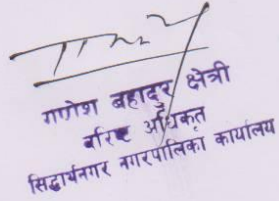 गणेश बहादुर क्षेत्री
वरिष्ठ अधिकृत
सिद्धार्थनगर नगरपालिका कार्यालय